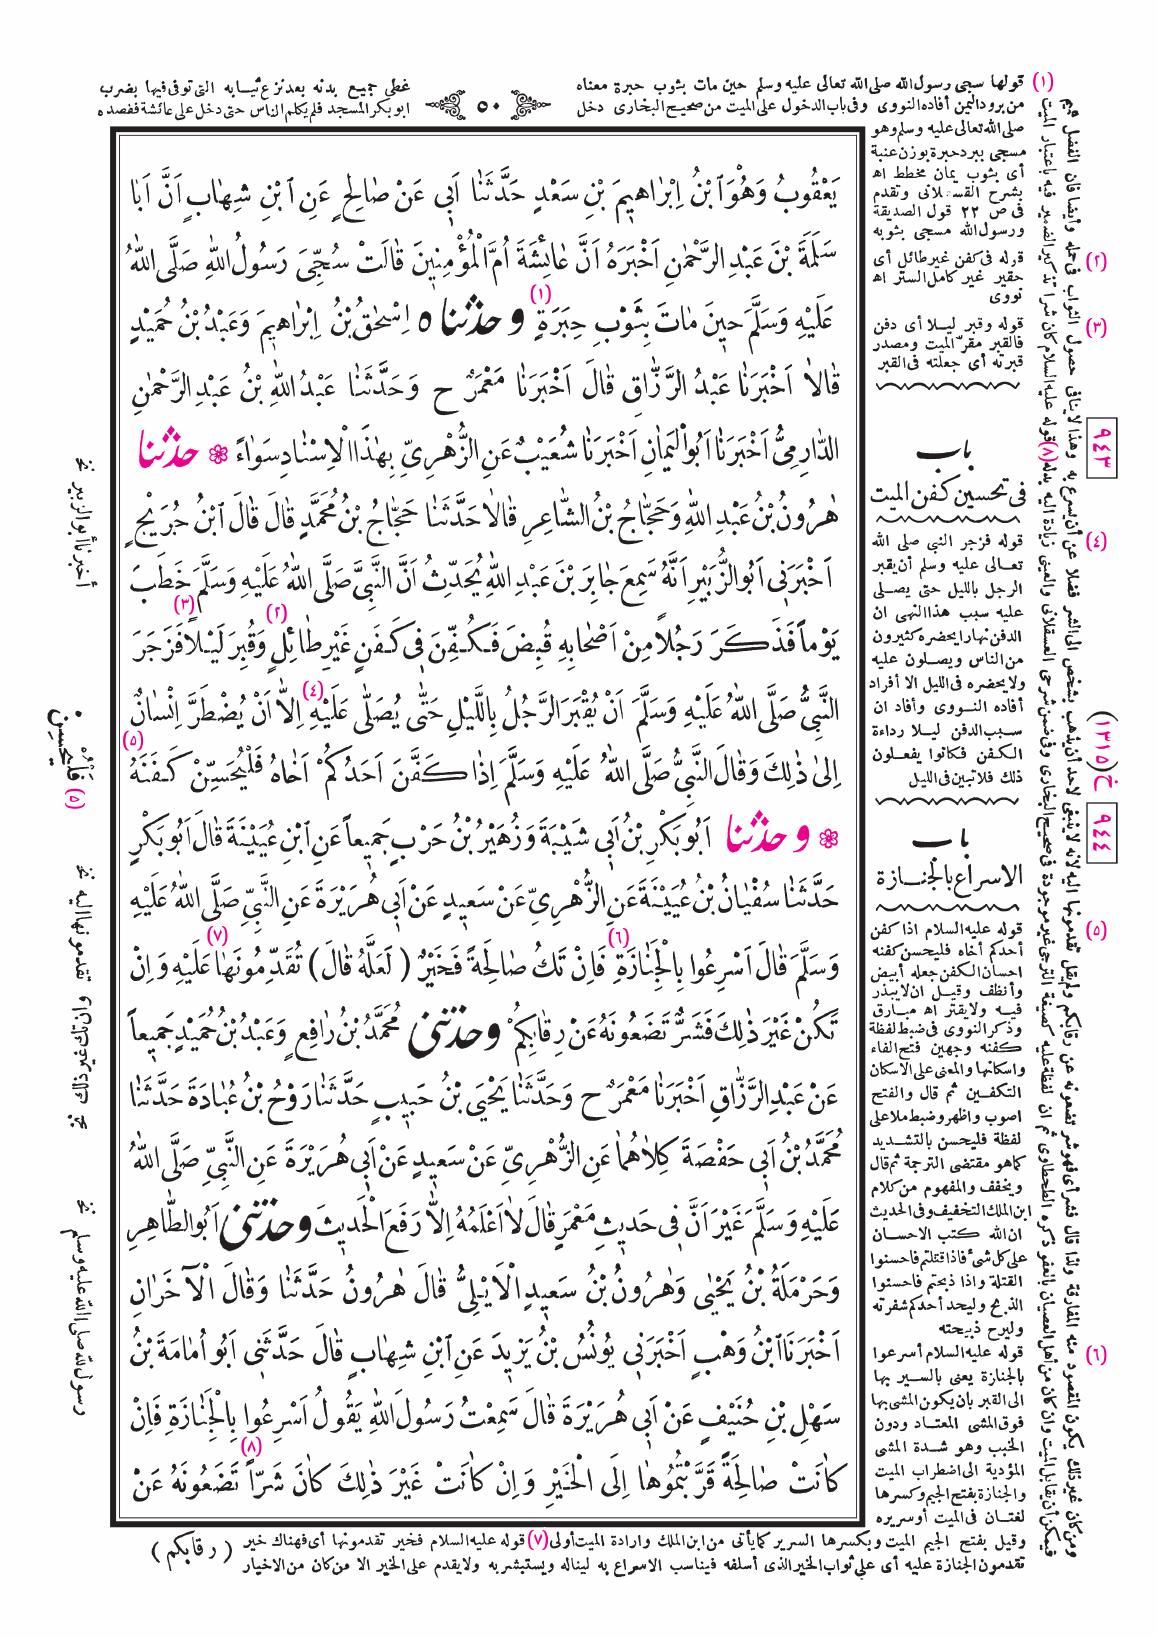 (١) قولها سجى رسول الله صلى الله تعالى عليه وسلم حين مات بثوب حبرة معناه
غطى جميع بدنه بعد نزع ثيابه التى توفى فيها بضرب
٥٠
من برود اليمن أفاده النووى وفى باب الدخول على الميت من صحيح البخارى دخل
ابوبكر المسجد فلم يكلم الناس حتى دخل على عائشة فقصده
صلى الله تعالى عليه وسلم وهو
مسجى ببرد حبرة بوزن عنبة
أى بثوب يمان مخطط اه
بشرح القسطلانى وتقدم
فى ص ٢٢ قول الصديقة
ورسول الله مسجى بثوبه
(٢) قوله فى كفن غير طائل أى
حقير غير كامل الستر اه
نووى
(٣) قوله وقبر ليلا أى دفن
فالقبر مقرّ الميت ومصدر
قبرته أى جعلته فى القبر
٩٤٣
باب
فى تحسين كفن الميت
(٤) قوله فزجر النبي صلى الله
تعالى عليه وسلم أن يقبر
الرجل بالليل حتى يصلى
عليه سبب هذا النهى ان
الدفن نهارا يحضره كثيرون
من الناس ويصلون عليه
ولا يحضره فى الليل الا أفراد
أفاده النووى وأفاد ان
سبب الدفن ليلا رداءة
الكفن فكانوا يفعلون
ذلك فلا تبين فى الليل
خ (١٣١٥)
٩٤٤
باب
الاسراع بالجنازة
(٥) قوله عليه السلام اذا كفن
أحدكم أخاه فليحسن كفنه
احسان الكفن جعله أبيض
وأنظف وقيل ان لا يبذر
فيه ولا يقتر اه مبارق
وذكر النووى فى ضبط لفظة
كفنه وجهين فتح الفاء
واسكانها والمعنى على الاسكان
التكفين ثم قال والفتح
اصوب واظهر وضبط ملا على
لفظة فليحسن بالتشديد
كما هو مقتضى الترجمة ثم قال
ويخفف والمفهوم من كلام
ابن الملك التخفيف وفى الحديث
ان الله كتب الاحسان
على كل شئ فاذا قتلتم فاحسنوا
القتلة واذا ذبحتم فاحسنوا
الذبح وليحد أحدكم شفرته
وليرح ذبيحته
(٦) قوله عليه السلام أسرعوا
بالجنازة يعنى بالسير بها
الى القبر بأن يكون المشى بها
فوق المشى المعتاد ودون
الخبب وهو شدة المشى
المؤدية الى اضطراب الميت
والجنازة بفتح الجيم وكسرها
لغتان فى الميت أو سريره
يَعْقُوبُ وَهُوَ ابْنُ اِبْرَاهِيمَ بْنِ سَعْدٍ حَدَّثَنَا اَبِى عَنْ صَالِحٍ عَنِ ابْنِ شِهَابٍ اَنَّ اَبَا
سَلَمَةَ بْنَ عَبْدِ الرَّحْمٰنِ اَخْبَرَهُ اَنَّ عَائِشَةَ اُمَّ الْمُؤْمِنِينَ قَالَتْ سُجِّىَ رَسُولُ اللهِ صَلَّى اللهُ
عَلَيْهِ وَسَلَّمَ حِينَ مَاتَ بِثَوْبِ حِبَرَةٍ (١) وحدثنا ٥ اِسْحٰقُ بْنُ اِبْرَاهِيمَ وَعَبْدُ بْنُ حُمَيْدٍ
قَالاَ اَخْبَرَنَا عَبْدُ الرَّزَّاقِ قَالَ اَخْبَرَنَا مَعْمَرٌ ح وَحَدَّثَنَا عَبْدُ اللهِ بْنُ عَبْدِ الرَّحْمٰنِ
الدَّارِمِىُّ اَخْبَرَنَا اَبُو الْيَمَانِ اَخْبَرَنَا شُعَيْبٌ عَنِ الزُّهْرِىِّ بِهٰذَا الْاِسْنَادِ سَوَاءً ۞ حدثنا
هٰرُونُ بْنُ عَبْدِ اللهِ وَحَجَّاجُ بْنُ الشَّاعِرِ قَالاَ حَدَّثَنَا حَجَّاجُ بْنُ مُحَمَّدٍ قَالَ قَالَ ابْنُ جُرَيْجٍ
اَخْبَرَنِى اَبُو الزُّبَيْرِ اَنَّهُ سَمِعَ جَابِرَ بْنَ عَبْدِ اللهِ يُحَدِّثُ اَنَّ النَّبِىَّ صَلَّى اللهُ عَلَيْهِ وَسَلَّمَ خَطَبَ
يَوْماً فَذَكَرَ رَجُلاً مِنْ اَصْحَابِهِ قُبِضَ فَكُفِّنَ فِى كَفَنٍ غَيْرِ طَائِلٍ (٢) وَقُبِرَ لَيْلاً (٣) فَزَجَرَ
النَّبِىُّ صَلَّى اللهُ عَلَيْهِ وَسَلَّمَ اَنْ يُقْبَرَ الرَّجُلُ بِاللَّيْلِ حَتّٰى يُصَلّٰى عَلَيْهِ (٤) اِلاَّ اَنْ يُضْطَرَّ اِنْسَانٌ
اِلٰى ذٰلِكَ وَقَالَ النَّبِىُّ صَلَّى اللهُ عَلَيْهِ وَسَلَّمَ اِذَا كَفَّنَ اَحَدُكُمْ اَخَاهُ فَلْيُحَسِّنْ كَفَنَهُ (٥)
۞ وحدثنا اَبُو بَكْرِ بْنُ اَبِى شَيْبَةَ وَزُهَيْرُ بْنُ حَرْبٍ جَمِيعاً عَنِ ابْنِ عُيَيْنَةَ قَالَ اَبُو بَكْرٍ
حَدَّثَنَا سُفْيَانُ بْنُ عُيَيْنَةَ عَنِ الزُّهْرِىِّ عَنْ سَعِيدٍ عَنْ اَبِى هُرَيْرَةَ عَنِ النَّبِىِّ صَلَّى اللهُ عَلَيْهِ
وَسَلَّمَ قَالَ اَسْرِعُوا بِالْجَنَازَةِ (٦) فَاِنْ تَكُ صَالِحَةً فَخَيْرٌ ( لَعَلَّهُ قَالَ ) تُقَدِّمُونَهَا عَلَيْهِ (٧) وَاِنْ
تَكُنْ غَيْرَ ذٰلِكَ فَشَرٌّ تَضَعُونَهُ عَنْ رِقَابِكُمْ وحدثنى مُحَمَّدُ بْنُ رَافِعٍ وَعَبْدُ بْنُ حُمَيْدٍ جَمِيعاً
عَنْ عَبْدِ الرَّزَّاقِ اَخْبَرَنَا مَعْمَرٌ ح وَحَدَّثَنَا يَحْيَى بْنُ حَبِيبٍ حَدَّثَنَا رَوْحُ بْنُ عُبَادَةَ حَدَّثَنَا
مُحَمَّدُ بْنُ اَبِى حَفْصَةَ كِلاَهُمَا عَنِ الزُّهْرِىِّ عَنْ سَعِيدٍ عَنْ اَبِى هُرَيْرَةَ عَنِ النَّبِىِّ صَلَّى اللهُ
عَلَيْهِ وَسَلَّمَ غَيْرَ اَنَّ فِى حَدِيثِ مَعْمَرٍ قَالَ لاَ اَعْلَمُهُ اِلاَّ رَفَعَ الْحَدِيثَ وحدثنى اَبُو الطَّاهِرِ
وَحَرْمَلَةُ بْنُ يَحْيٰى وَهٰرُونُ بْنُ سَعِيدٍ الْاَيْلِىُّ قَالَ هٰرُونُ حَدَّثَنَا وَقَالَ الْآخَرَانِ
اَخْبَرَنَا ابْنُ وَهْبٍ اَخْبَرَنِى يُونُسُ بْنُ يَزِيدَ عَنِ ابْنِ شِهَابٍ قَالَ حَدَّثَنِى اَبُو اُمَامَةَ بْنُ
سَهْلِ بْنِ حُنَيْفٍ عَنْ اَبِى هُرَيْرَةَ قَالَ سَمِعْتُ رَسُولَ اللهِ يَقُولُ اَسْرِعُوا بِالْجَنَازَةِ فَاِنْ
كَانَتْ صَالِحَةً قَرَّبْتُمُوهَا اِلَى الْخَيْرِ وَاِنْ كَانَتْ غَيْرَ ذٰلِكَ (٨) كَانَ شَرّاً تَضَعُونَهُ عَنْ
أخبرنا أبو الزبير نخ
(٥) فليحسن كفنه
تقدمونها اليه نخ
رسول الله صلى الله عليه وسلم نخ
وقيل بفتح الجيم الميت وبكسرها السرير كما يأتى من ابن الملك وارادة الميت أولى (٧) قوله عليه السلام فخير تقدمونها أى فهناك خير
( رقابكم )
تقدمون الجنازة عليه أى على ثواب الخير الذى أسلفه فيناسب الاسراع به ليناله ويستبشر به ولا يقدم على الخير الا من كان من الاخيار